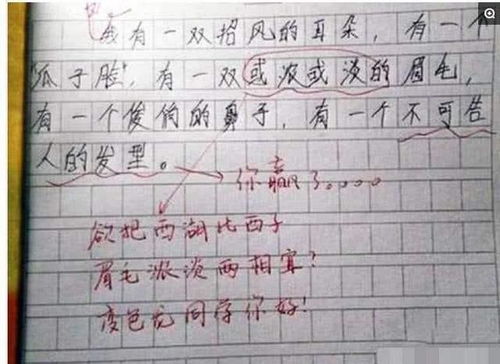 我有一双招风的耳朵,有一个
"瓜子脸",有一双或浓或淡的眉毛,
有一个俊俏的鼻子,有一个不可告
人的发型。
你赢了。。。。
欲把西湖比西子
眉毛浓淡两相宜?
变色龙同学你好!